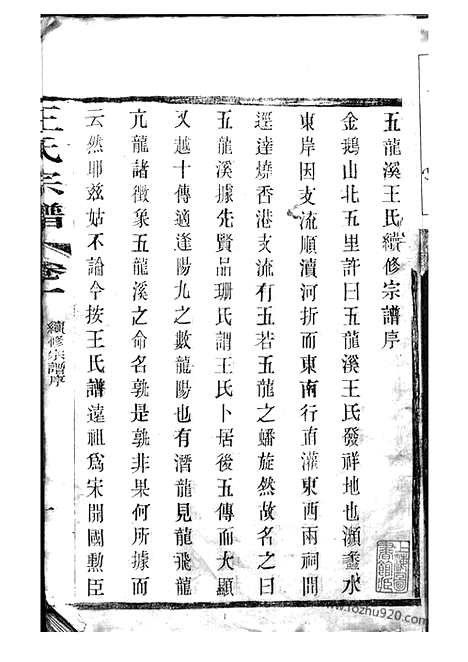 五龍溪王氏續修宗譜序
金鵝山北五里許曰五龍溪王氏發祥地也瀕蠡水
東岸因支流順瀆河折而東南行直灌東西兩祠間
逕達燒香港支流有五若五龍之蟠旋然故名之曰
五龍溪據先賢品珊氏謂王氏卜居後五傳而大顯
又越十傳適逢陽九之數龍陽也有潛龍見龍飛龍
亢龍諸徵象五龍溪之命名孰是孰非果何所據而
云然耶茲姑不論今按王氏譜遠祖爲宋開國勳臣
王氏宗譜
卷一
續修宗譜序
一
www.fozhu920.com